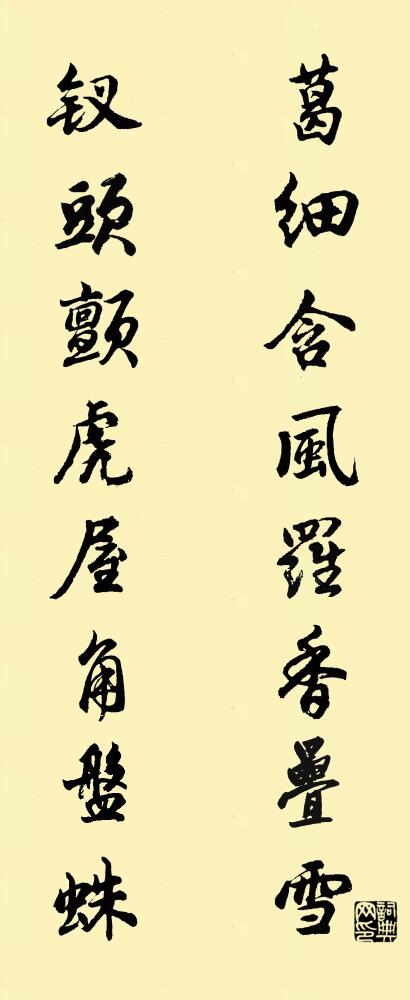 葛細含風羅香疊雪
釵頭顫虎屋角盤蛛
詞典网印